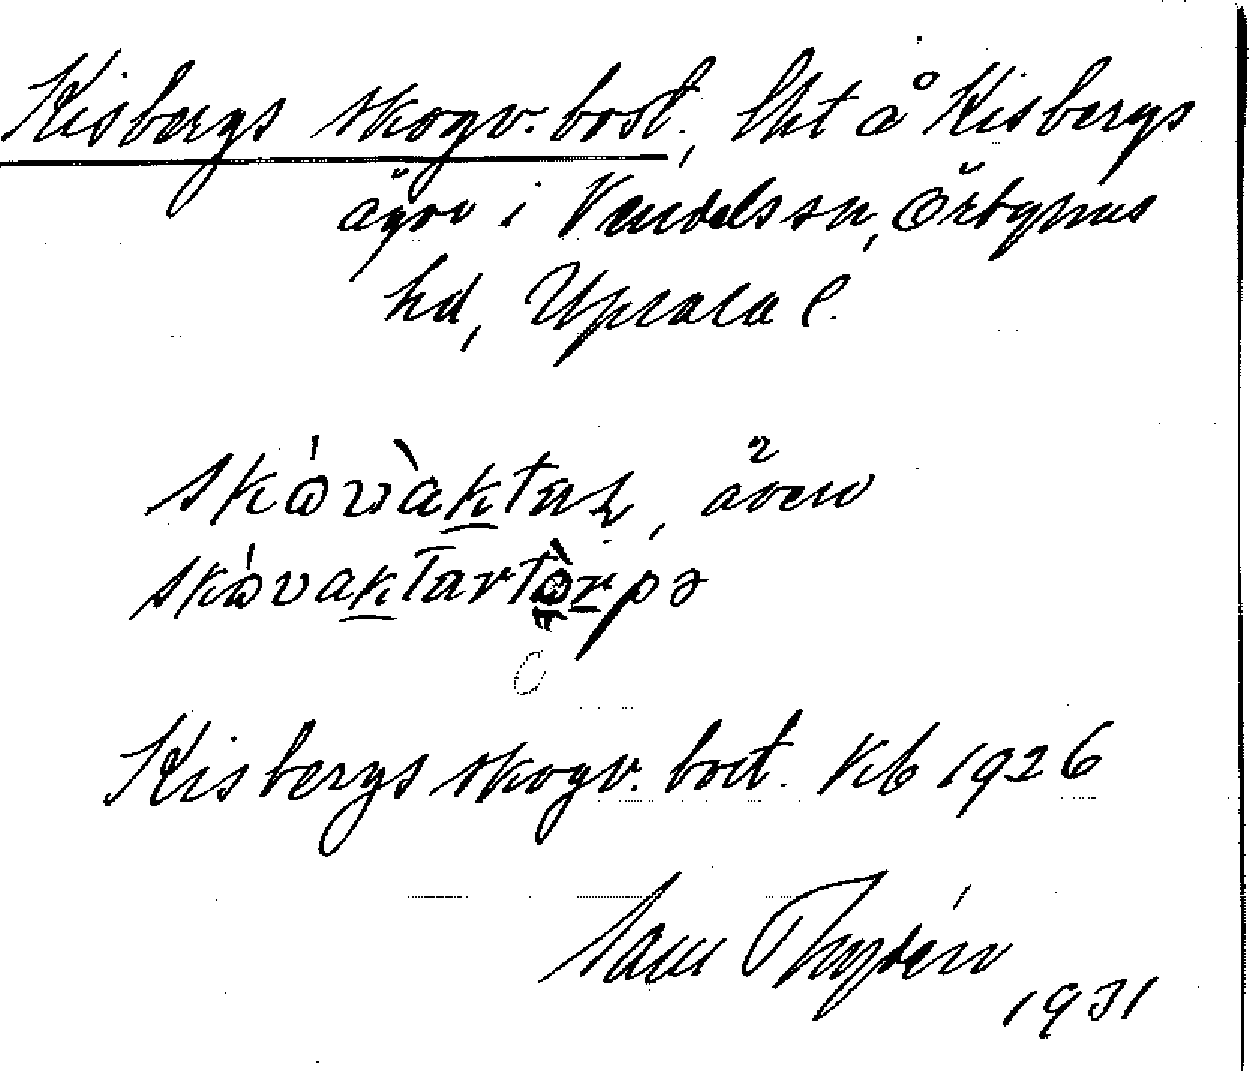 Kisbergs skogv. bost., lht å Kisbergs
ägor i Vendels sn, Örbyhus
hd, Uppsala l.
skòvàktaɳ, även
skòvaktartòrpə
Kisbergs skogv. bost. Kb 1926
Sam Thydén
1931